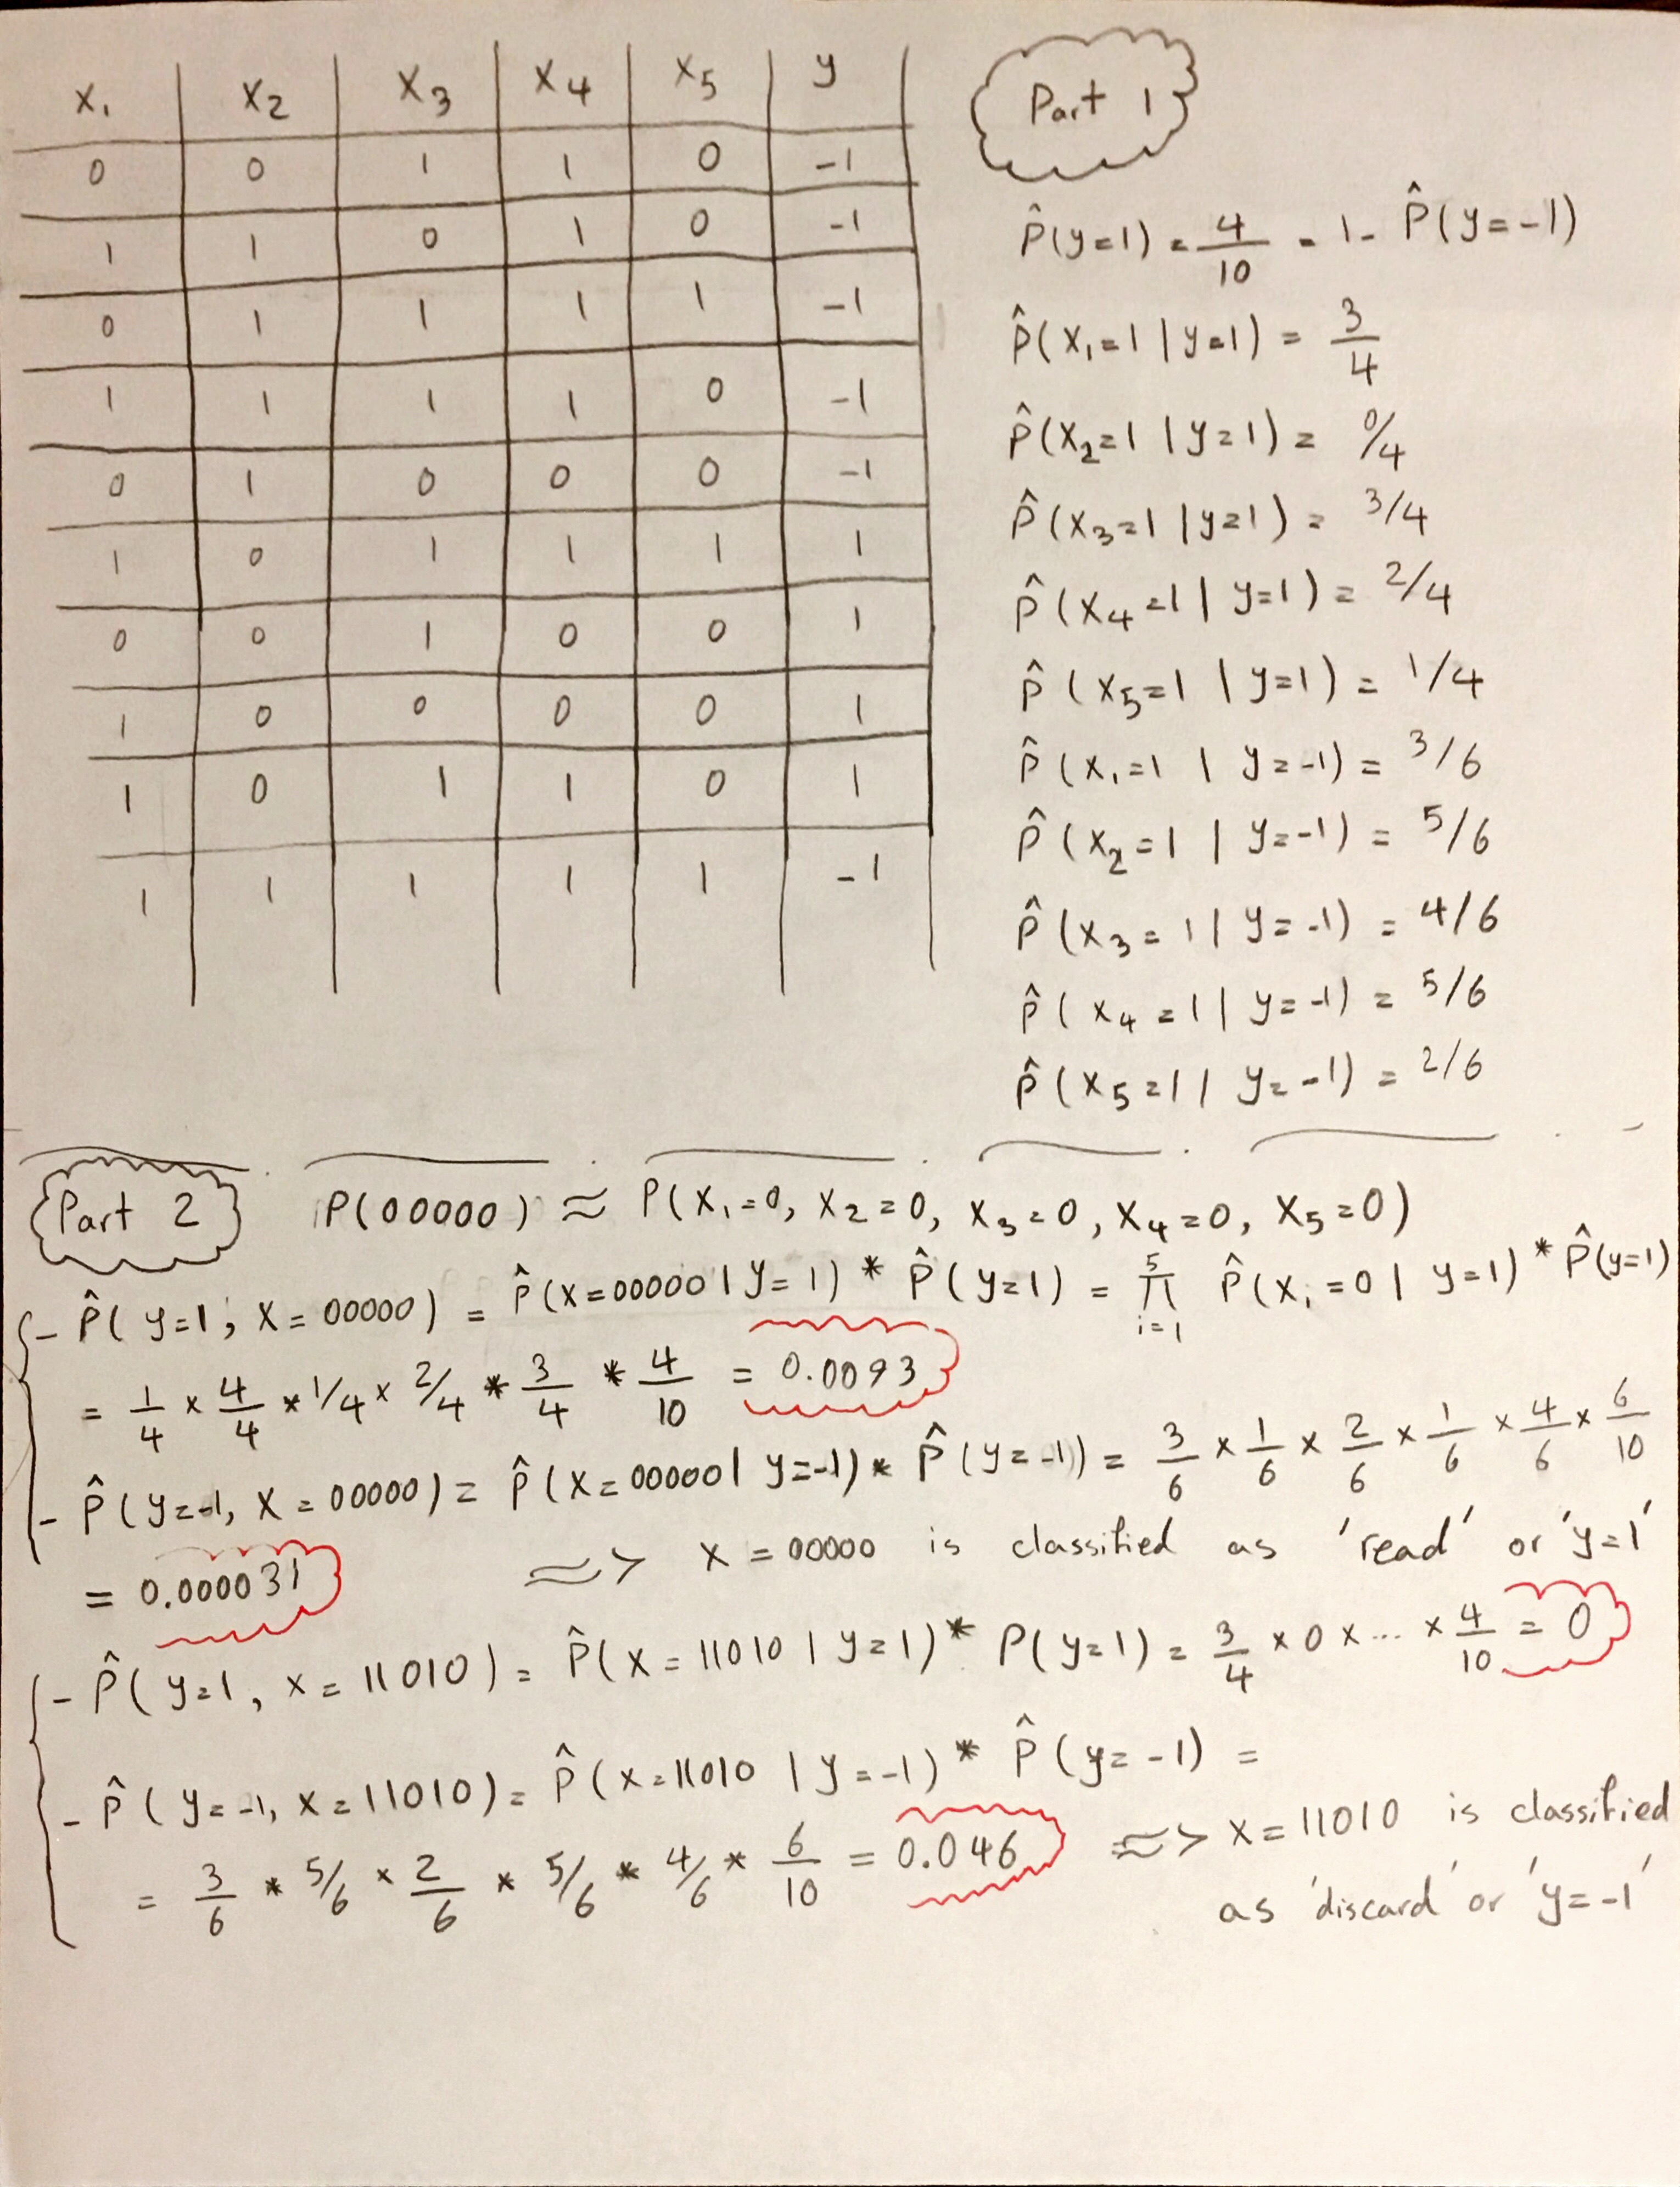 x₁ x₂ x₃ x₄ x₅ y
0 0 1 1 0 -1
1 1 0 1 0 -1
0 1 1 1 1 -1
1 1 1 1 0 -1
0 1 0 0 0 -1
1 0 1 1 1 1
0 0 1 0 0 1
1 0 0 0 0 1
1 0 1 1 0 1
1 1 1 1 1 -1
Part 1
P̂(y=1) = 4/10 = 1 - P̂(y=-1)
P̂(x₁=1 | y=1) = 3/4
P̂(x₂=1 | y=1) = 0/4
P̂(x₃=1 | y=1) = 3/4
P̂(x₄=1 | y=1) = 2/4
P̂(x₅=1 | y=1) = 1/4
P̂(x₁=1 | y=-1) = 3/6
P̂(x₂=1 | y=-1) = 5/6
P̂(x₃=1 | y=-1) = 4/6
P̂(x₄=1 | y=-1) = 5/6
P̂(x₅=1 | y=-1) = 2/6
Part 2 P(00000) ≈ P(x₁=0, x₂=0, x₃=0, x₄=0, x₅=0)
- P̂(y=1, x=00000) = P̂(x=00000 | y=1) * P̂(y=1) = ∏ᵢ₌₁⁵ P̂(xᵢ=0 | y=1) * P̂(y=1)
= 1/4 × 4/4 * 1/4 × 2/4 * 3/4 * 4/10 = 0.0093
- P̂(y=-1, x=00000) = P̂(x=00000 | y=-1) * P̂(y=-1) = 3/6 × 1/6 × 2/6 × 1/6 × 4/6 × 6/10
= 0.000031 => x=00000 is classified as 'read' or 'y=1'
- P̂(y=1, x=11010) = P̂(x=11010 | y=1) * P(y=1) = 3/4 × 0 × ... × 4/10 = 0
- P̂(y=-1, x=11010) = P̂(x=11010 | y=-1) * P̂(y=-1) =
= 3/6 * 5/6 × 2/6 * 5/6 * 4/6 * 6/10 = 0.046 => x=11010 is classified
as 'discard' or 'y=-1'